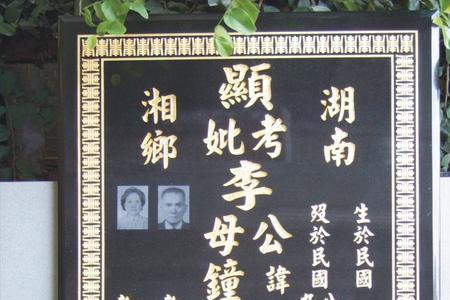 湖南
生於民國
歿於民國
顯考李公諱
妣母鐘
湘鄉